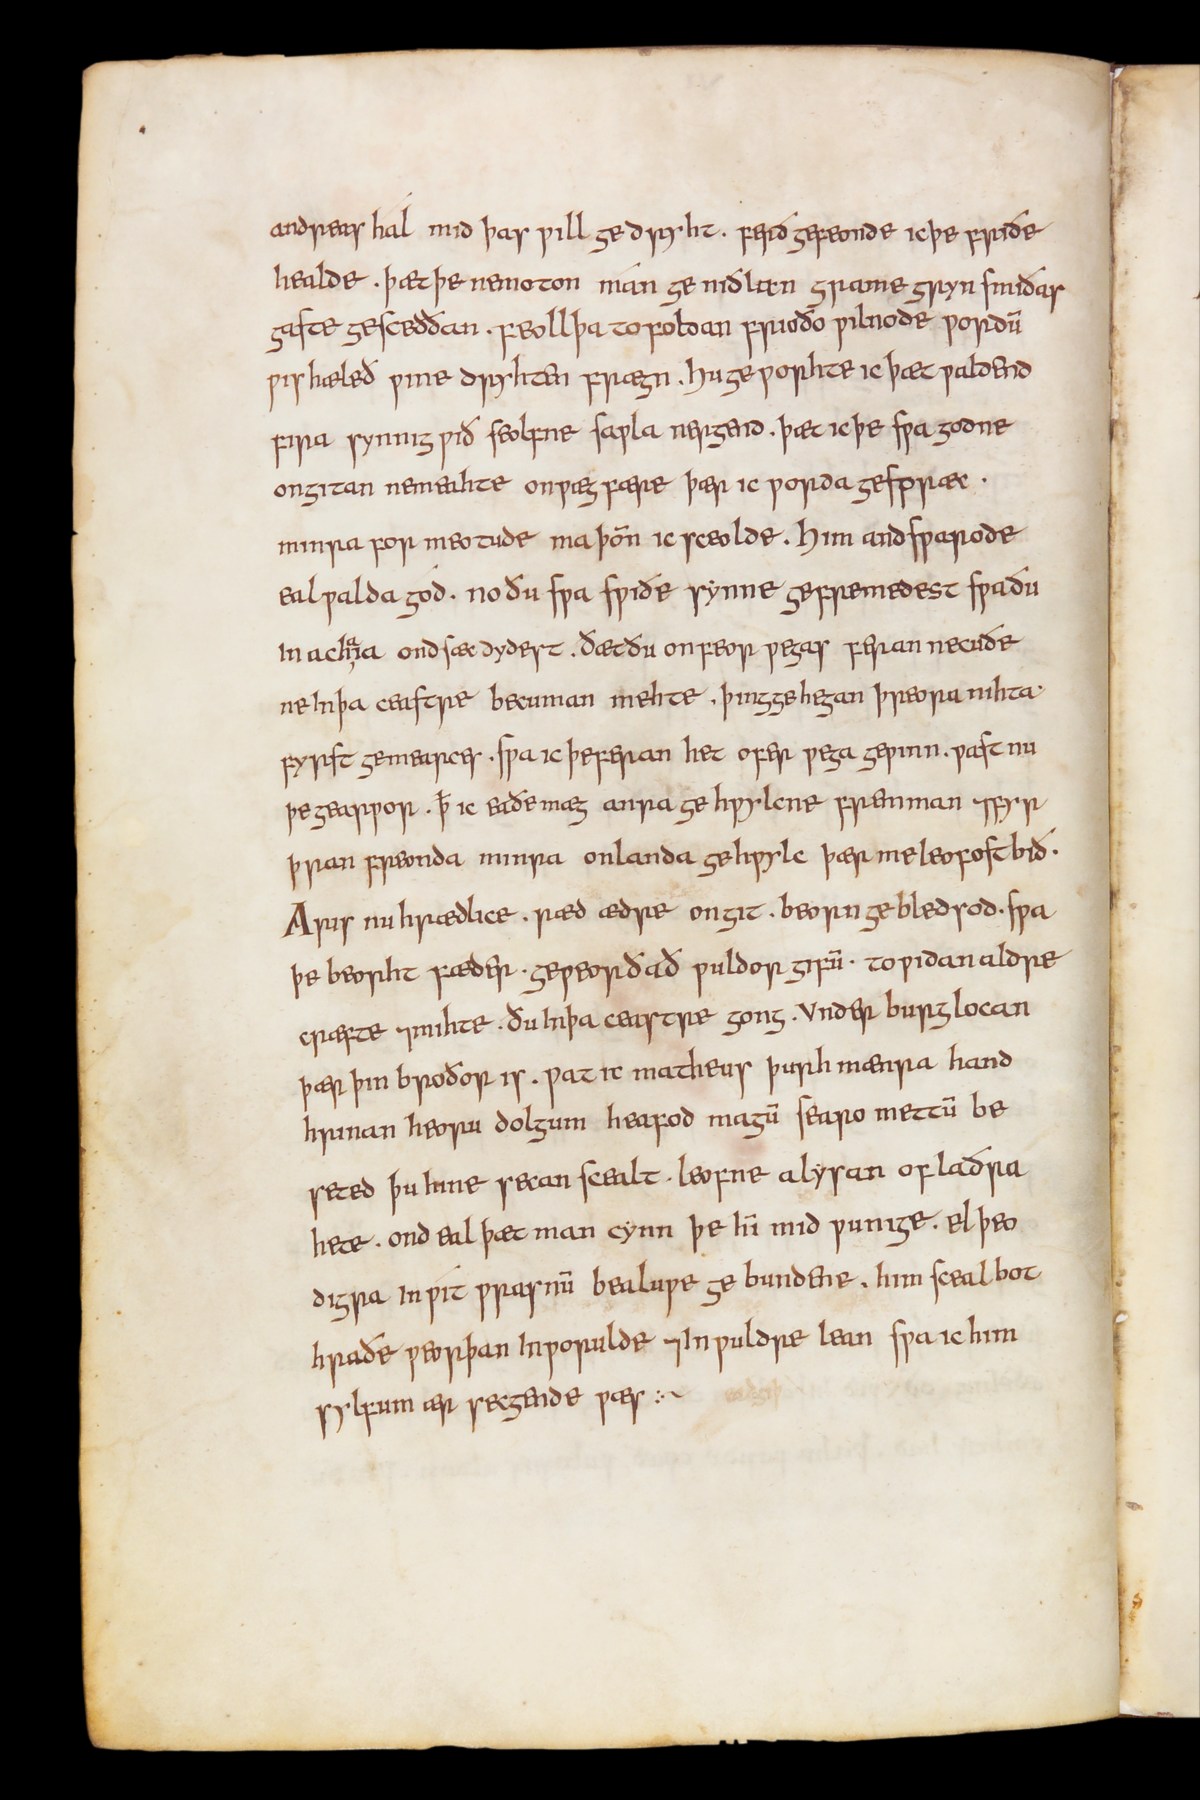 andreas hál mid þas ƿill gedryht. ferð gefeonde ic þe friðe
healde. þæt þe ne moton mán geniðlan grame gryn smiðas
gaste gesceððan. feoll þa to foldan frioðo ƿilnode ƿordū
ƿis hæleð ƿine dryhten frægn. Hu geƿorhte ic þæt ƿaldend
fira synnig ƿið seolfne saƿla nergend. þæt ic þe sƿa godne
ongitan ne meahte on ƿæg fære þær ic ƿorda gespræc.
minra for meotude ma þōn ic sceolde. Him andsƿarode
eal ƿalda gód. no ðu sƿa sƿiðe synne gefremedest sƿa ðu
In achaia ondsæc dydest. ðæt ðu on feor ƿegas feran ne cuðe
ne In þa ceastre becuman mehte. þing gehegan þreora nihta.
fyrst gemearces. sƿa ic þe feran het ofer ƿega geƿinn. ƿast nu
þe gearƿor. ꝥ ic eaðe mæg anra gehƿylcne fremman ⁊ fyr
þran freonda minra on landa gehƿylc þær me leofost bið.
Aris nu hrædlice. ræd ædre ongit. beorn gebledsod. sƿa
þe beorht fæder. geƿeorðað ƿuldor gifū. to ƿidan aldre
cræfte ⁊ mihte. ðu In þa ceastre gong. Vnder burglocan
þær þin broðor is. ƿat ic matheus þurh mænra hand
hrinan heoru dolgum heafod magū searo mettū be
seted þu hine secan scealt. leofne alysan of laðra
hete. ond eal þæt man cynn þe hī mid ƿunige. el þeo
digra Inƿit ƿrasnū bealuƿe gebundene. him sceal bot
hraðe ƿeorþan In ƿorulde ⁊ In ƿuldre lean sƿa ic him
sylfum ær secgende ƿæs :~